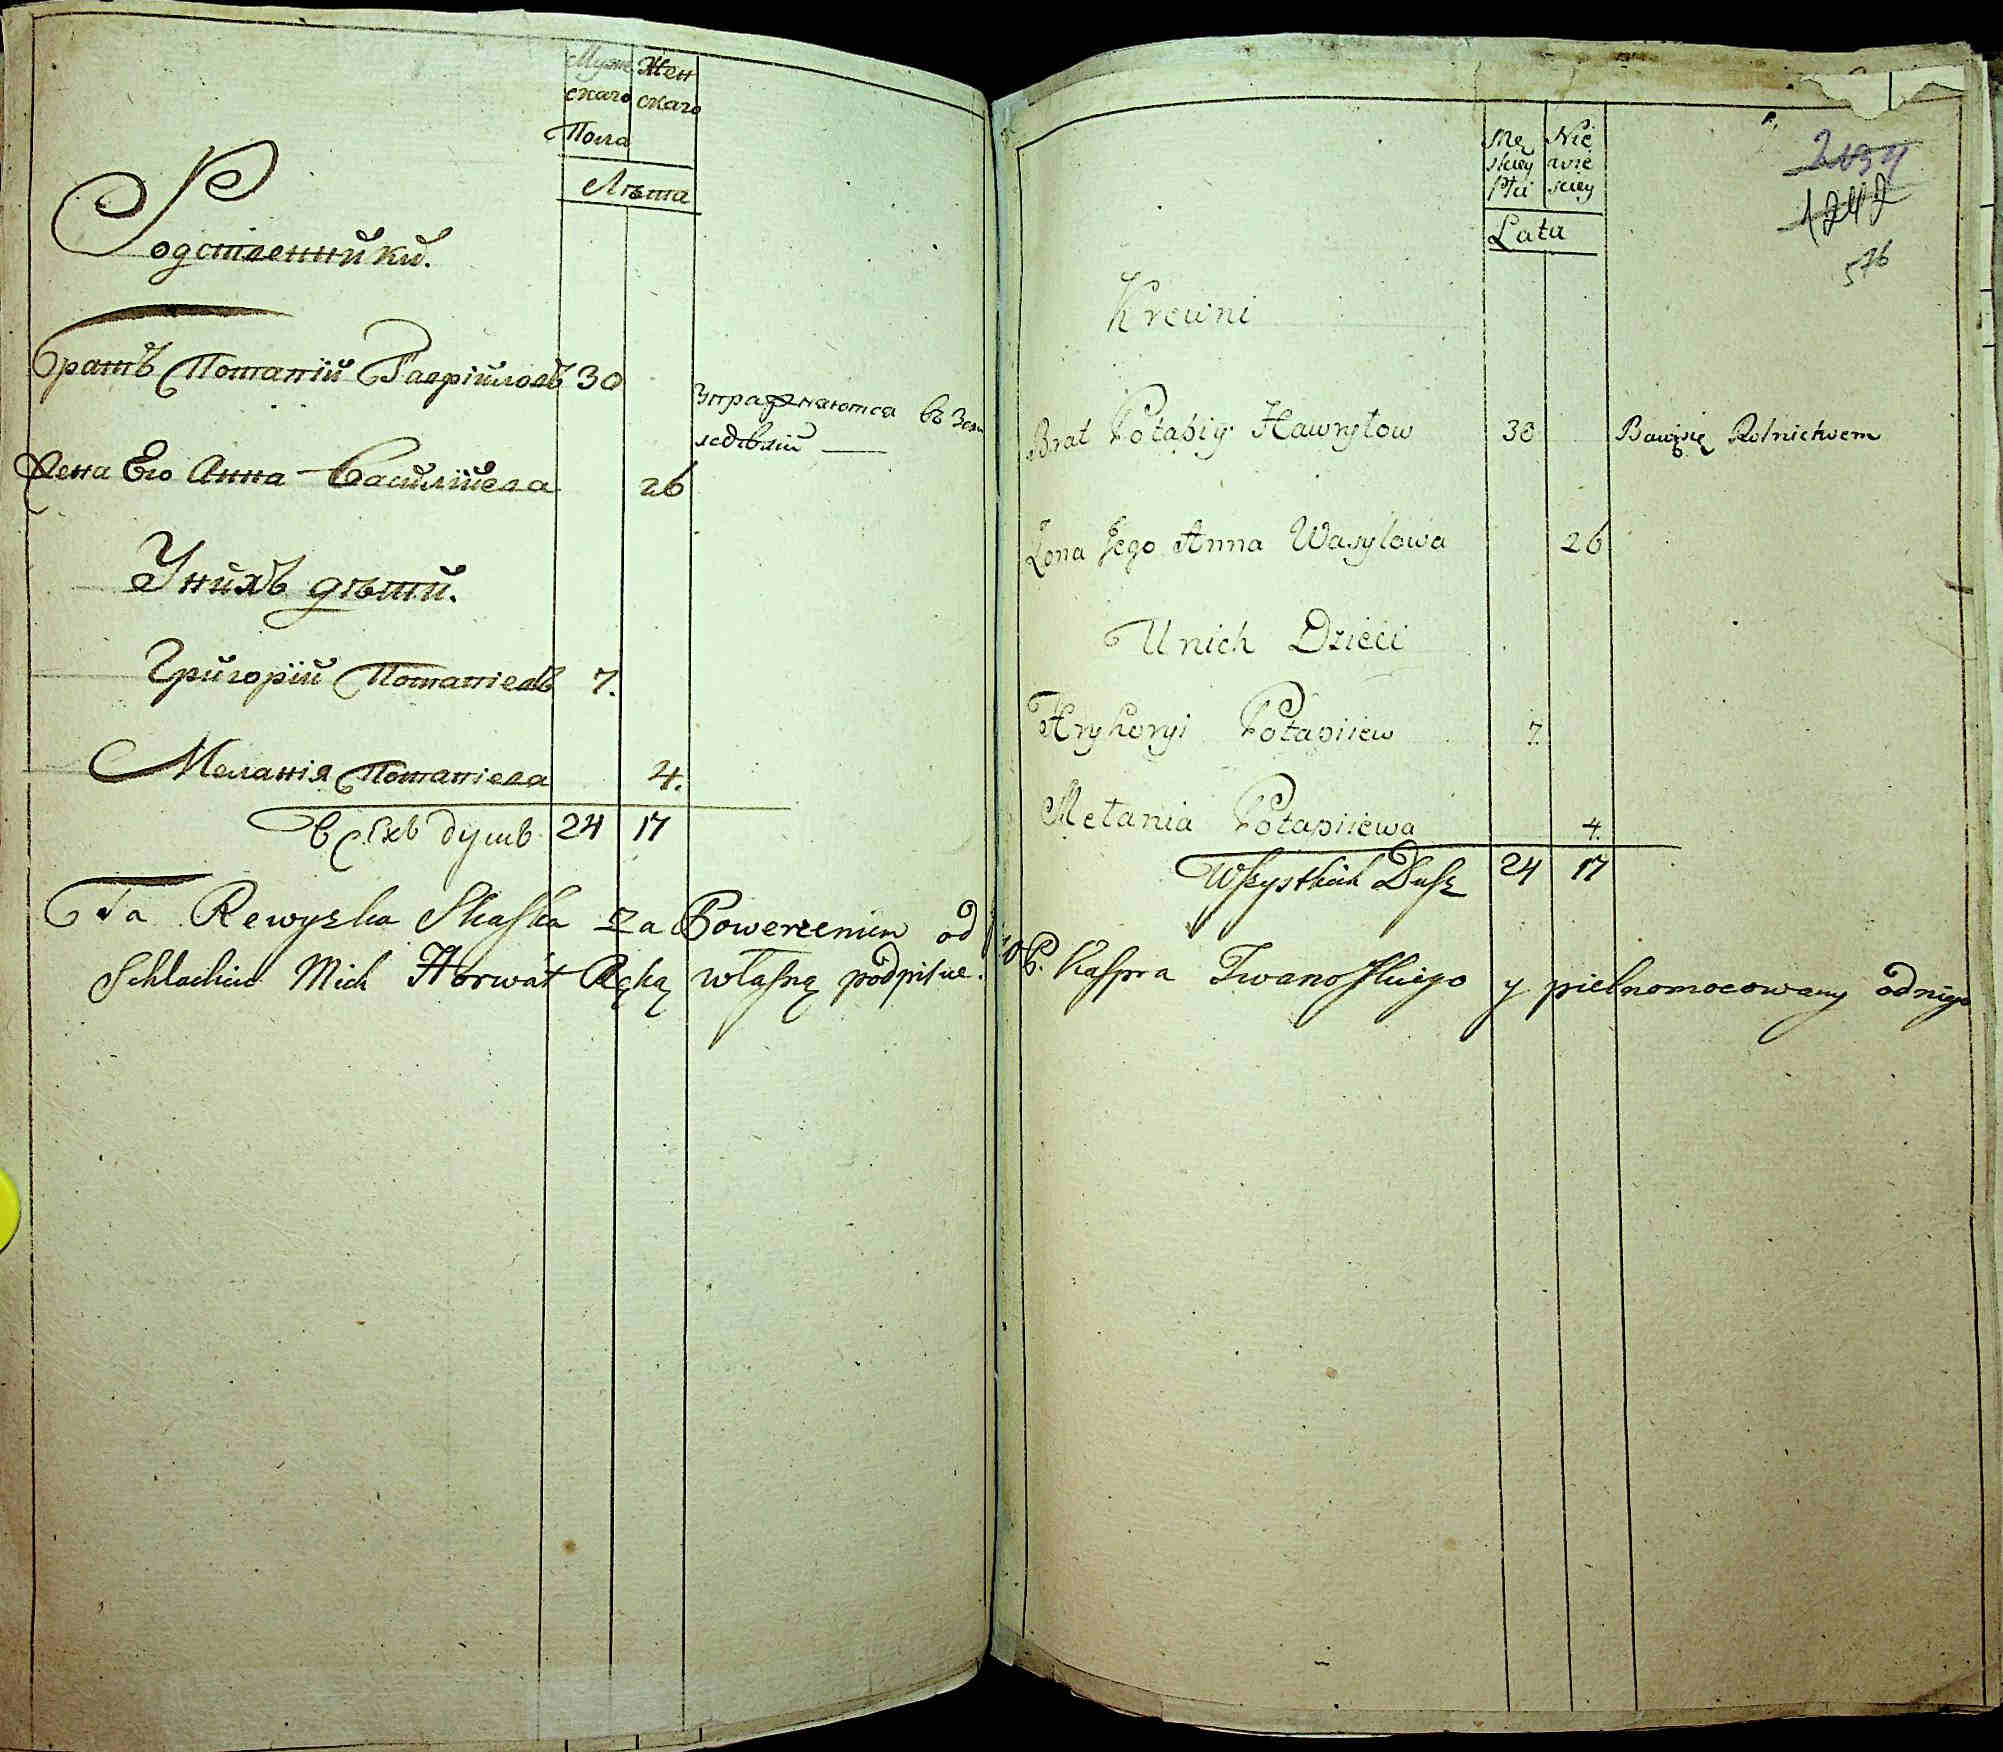 Муже Жен
скаго скаго
Пола
Лѣта
Родственники.
Братъ Потапій Гаврійловъ 30
Упражняются въ Зем
ледѣлій
Жена Его Анна Василйева 26
У нихъ дѣти.
Григорій Потапіевъ 7.
Меланія Потапіева 4.
Всѣхъ душъ 24 17
Ta Rewyzka Skaska za Powerzeniem od
Schlachcic Mich Horwat Ręką własną podpisue.
Mę Nie
skiey wie
Płci sciey
Lata
2039
1242
576
Krewni
Brat Potapiy Hawryłow 30 Bawią się Rolnictwem
Żona Jego Anna Wasylowa 26
U nich Dzieci
Hryhoryi Potapiiew 7
Mełania Potapiiewa 4.
Wszystkich Dusz 24 17
P. Kaspra Iwanoskiego y pielnomocowany od niego